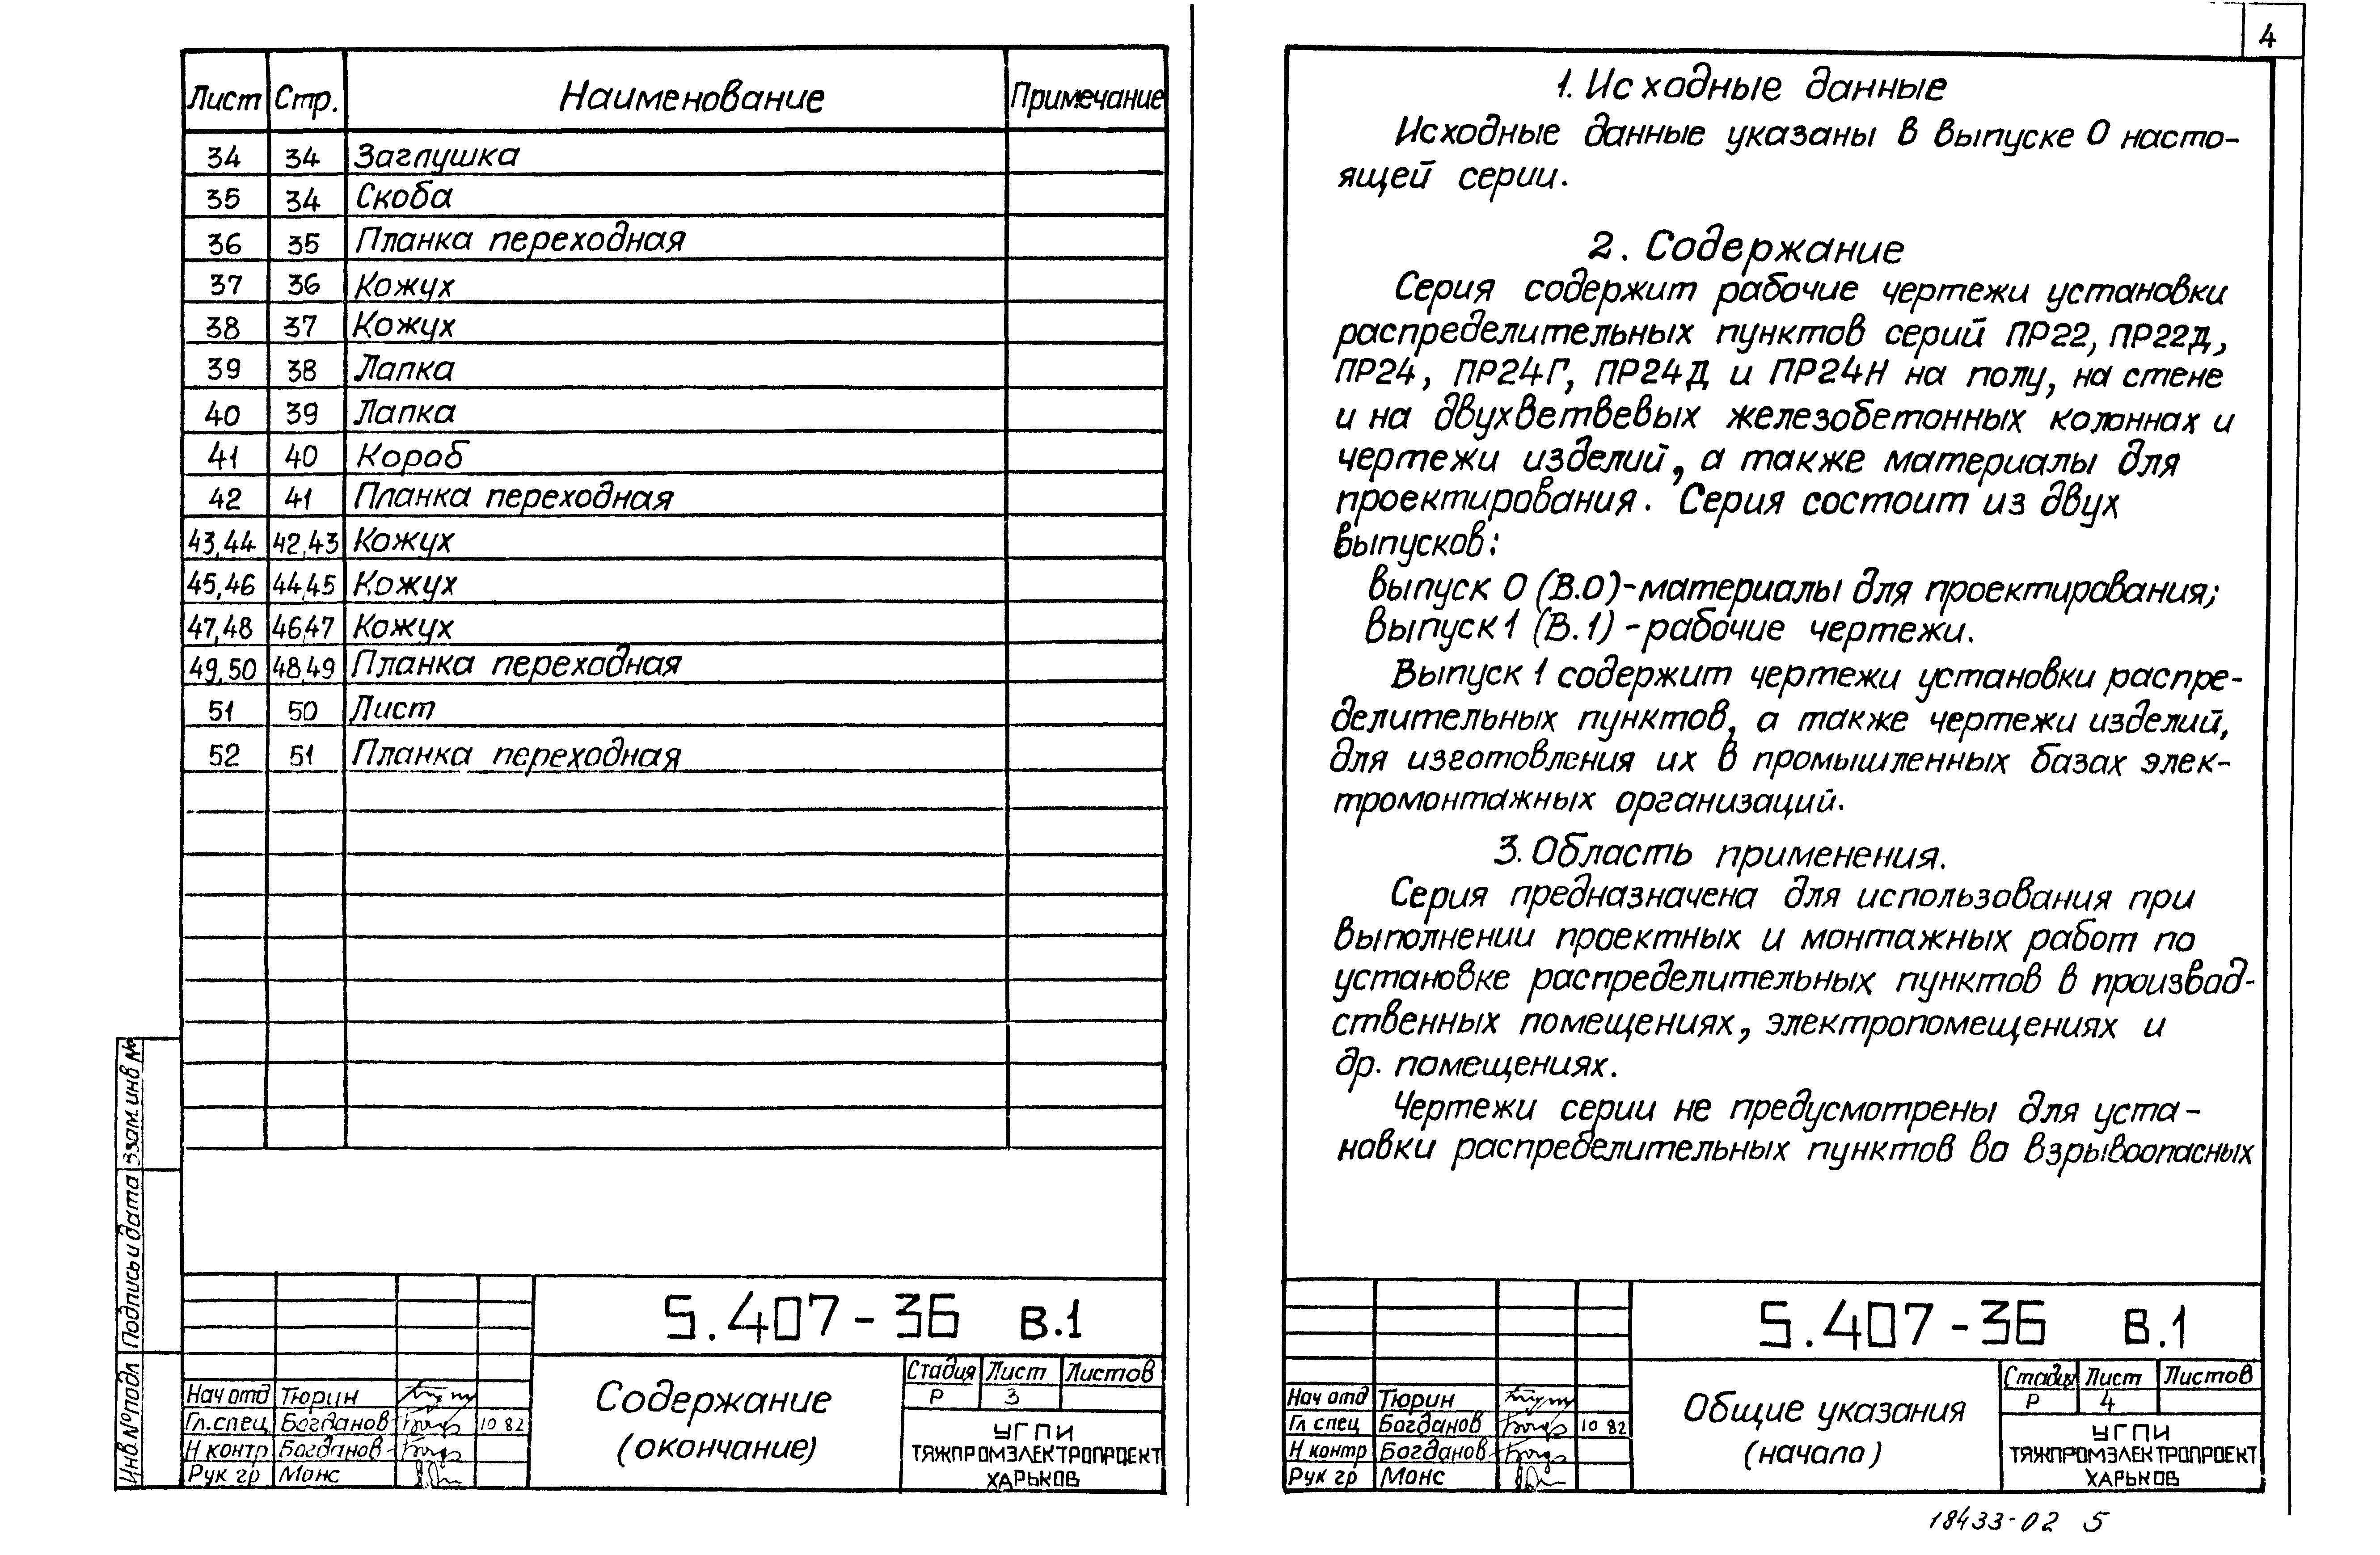 Лист Стр. Наименование Примечание
34 34 Заглушка
35 34 Скоба
36 35 Планка переходная
37 36 Кожух
38 37 Кожух
39 38 Лапка
40 39 Лапка
41 40 Короб
42 41 Планка переходная
43,44 42,43 Кожух
45,46 44,45 Кожух
47,48 46,47 Кожух
49,50 48,49 Планка переходная
51 50 Лист
52 51 Планка переходная
Инв.№подл Подпись и дата Взам.инв №
5.407-36 В.1
Содержание
(окончание)
Стадия Лист Листов
Р 3
УГПИ
ТЯЖПРОМЭЛЕКТРОПРОЕКТ
ХАРЬКОВ
Нач отд Тюрин
Гл.спец Богданов 10 82
Н контр Богданов
Рук гр Монс
4
1. Исходные данные
Исходные данные указаны в выпуске 0 насто-
ящей серии.
2. Содержание
Серия содержит рабочие чертежи установки
распределительных пунктов серий ПР22, ПР22Д,
ПР24, ПР24Г, ПР24Д и ПР24Н на полу, на стене
и на двухветвевых железобетонных колоннах и
чертежи изделий, а также материалы для
проектирования. Серия состоит из двух
выпусков:
выпуск 0 (В.0)-материалы для проектирования;
выпуск 1 (В.1) - рабочие чертежи.
Выпуск 1 содержит чертежи установки распре-
делительных пунктов, а также чертежи изделий,
для изготовления их в промышленных базах элек-
тромонтажных организаций.
3. Область применения.
Серия предназначена для использования при
выполнении проектных и монтажных работ по
установке распределительных пунктов в производ-
ственных помещениях, электропомещениях и
др. помещениях.
Чертежи серии не предусмотрены для уста-
новки распределительных пунктов во взрывоопасных
5.407-36 В.1
Общие указания
(начало)
Стадия Лист Листов
Р 4
УГПИ
ТЯЖПРОМЭЛЕКТРОПРОЕКТ
ХАРЬКОВ
Нач отд Тюрин
Гл спец Богданов 10 82
Н контр Богданов
Рук гр Монс
18433-02 5